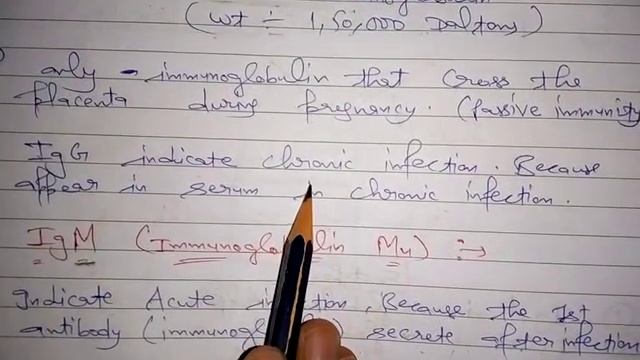 (wt ÷ 1,50,000 Daltons)
only - immunoglobulin that cross the
placenta during pregnancy. (passive immunity
IgG indicate chronic infection. Because
appear in serum in chronic infection.
IgM (Immunoglobulin Mu) :→
Indicate Acute infection, Because the Ist
antibody (immunoglob) secrete after infection